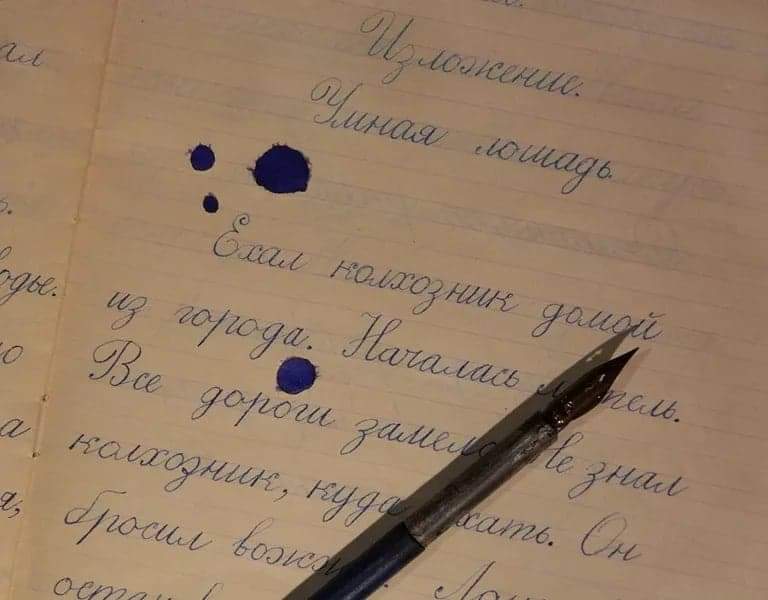 Изложение.
Умная лошадь.
Ехал колхозник домой
из города. Началась
Все дороги замело. Не знал
колхозник, куда ехать. Он
бросил вожжи.